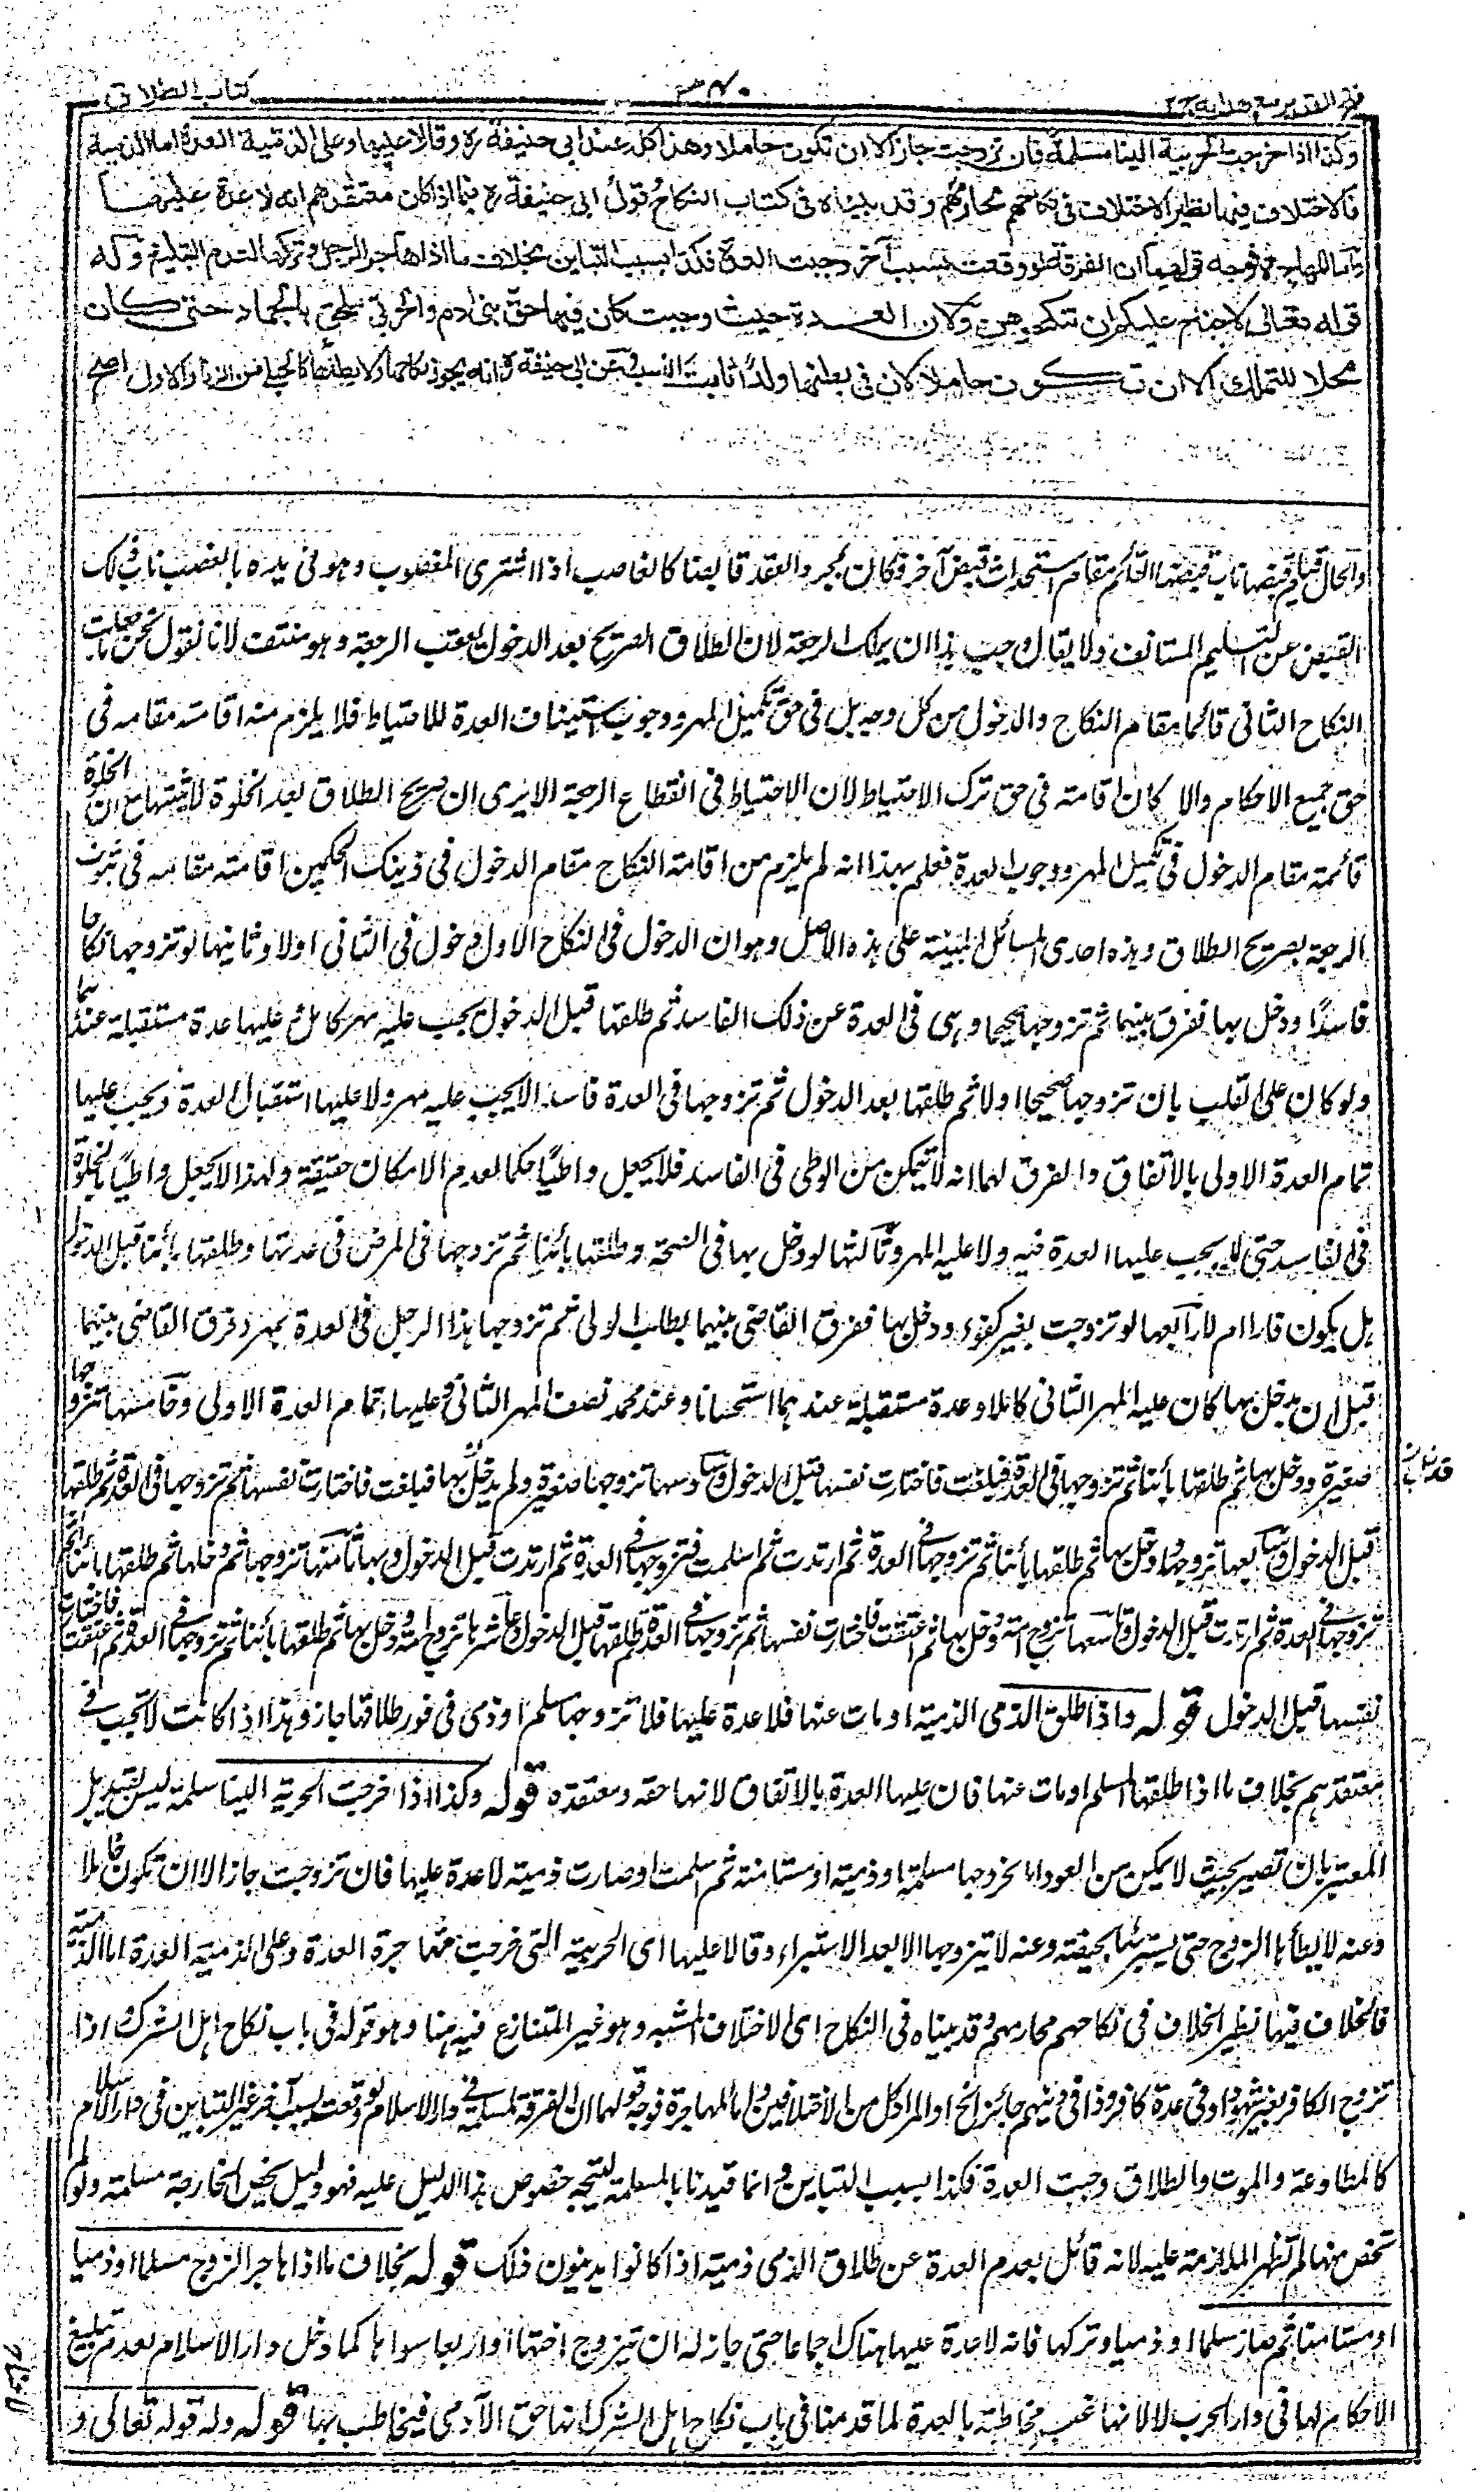 فتح القدير مع هدايه ج٢
كتاب الطلاق
وكذا اذا خرجت الحربية الينا مسلمة فان تزوجت جاز الا ان تكون حاملا وهذا كله عند ابي حنيفة رح وقالا عليها وعلى الذمية العدة اما الذمية
فالاختلاف فيها نظير الاختلاف في نكاحهم محارمهم وقد بيناه في كتاب النكاح وقول ابي حنيفة رح فيما اذا كان معتقدهم انه لا عدة عليها
واما المهاجرة فوجه قولهما ان الفرقة لو وقعت بسبب آخر وجبت العدة فكذا بسبب التباين بخلاف ما اذا هاجر الرجل وتركها لعدم التبليغ وله
قوله تعالى لا جناح عليكم ان تنكحوهن ولان العدة حيث وجبت كان فيها حق بنى ادم والحربي ملحق بالجماد حتى كان
محلا للتملك الا ان تكون حاملا لان في بطنها ولدا ثابت النسب وعن ابي حنيفة رح انه يجوز نكاحها ولا يطئها كالحبلى من الزنا والاول اصح
والحال قيام قبضها ناب قبضها القائم مقام استحداث قبض آخر فكان بمجرد العقد قابضا كالغاصب اذا اشترى المغصوب وهو في يده بالغصب ناب ذلك
القبض عن التسليم المستانف ولا يقال وجب بهذا ان يملك الرجعة لان الطلاق الصريح بعد الدخول يعقب الرجعة وهو منتف لانا نقول نحن ما جعلت
النكاح الثاني قائما مقام النكاح والدخول من كل وجه بل في حق تكميل المهر ووجوب استيناف العدة للاحتياط فلا يلزم منه اقامته مقامه في
حق جميع الاحكام والا كان اقامته في حق ترك الاحتياط لان الاحتياط في انقطاع الرجعة الا يرى ان صريح الطلاق بعد الخلوة لا يثبتها مع ان الخلوة
قائمة مقام الدخول في تكميل المهر ووجوب العدة فعلم بهذا انه لم يلزم من اقامة النكاح مقام الدخول في ذينك الحكمين اقامته مقامه في ثبوت
الرجعة بصريح الطلاق وهذه احدى المسائل المبنية على هذه الاصل وهو ان الدخول في النكاح الاول دخول في الثاني اولا وثانيها لو تزوجها نكاحا
فاسدا ودخل بها ففرق بينهما ثم تزوجها صحيحا وهي في العدة عن ذلك الفاسد ثم طلقها قبل الدخول يجب عليه مهر كامل وعليها عدة مستقبلة عندهما
ولو كان على القلب بان تزوجها صحيحا اولا ثم طلقها بعد الدخول ثم تزوجها في العدة فاسدا لا يجب عليه مهر ولا عليها استقبال العدة ويجب عليها
تمام العدة الاولى بالاتفاق والفرق لهما انه لا يتمكن من الوطى في الفاسد فلا يجعل واطيا حكما لعدم الامكان حقيقة ولهذا لا يجعل واطيا بالخلوة
في الفاسد حتى لا يجب عليها العدة فيه ولا عليه المهر وثالثها لو دخل بها في الصحة وطلقها بائنا ثم تزوجها في المرض في عدتها وطلقها بائنا قبل الدخول
هل يكون فارا ام لا رابعها لو تزوجت بغير كفوء ودخل بها ففرق القاضي بينهما بطلب الولى ثم تزوجها هذا الرجل في العدة بمهر وفرق القاضي بينهما
قبل ان يدخل بها كان عليه المهر الثاني كاملا وعدة مستقبلة عندهما استحسانا وعند محمد نصف المهر الثاني وعليها تمام العدة الاولى وخامسها تزوجها
صغيرة ودخل بها ثم طلقها بائنا ثم تزوجها في العدة فبلغت فاختارت نفسها قبل الدخول وسادسها تزوجها صغيرة ولم يدخل بها فبلغت فاختارت نفسها ثم تزوجها في العدة ثم طلقها
قبل الدخول وسابعها تزوجها ودخل بها ثم طلقها بائنا ثم تزوجها في العدة ثم ارتدت ثم اسلمت فتزوجها في العدة ثم ارتدت قبل الدخول بها وثامنها تزوجها ودخلها ثم طلقها بائنا ثم
تزوجها في العدة ثم ارتدت قبل الدخول وتاسعها تزوج امة ودخل بها ثم اعتقت فاختارت نفسها ثم تزوجها في العدة ثم طلقها قبل الدخول وعاشرها تزوج امة ودخل بها ثم طلقها بائنا ثم تزوجها في العدة ثم اعتقت فاختارت
نفسها قبل الدخول قوله واذا طلق الذمى الذمية او مات عنها فلا عدة عليها فلا تزوجها مسلم او ذمى في فور طلاقها جاز وهذا اذا كانت لا تجب في
معتقدهم بخلاف ما اذا طلقها المسلم او مات عنها فان عليها العدة بالاتفاق لانها حقه ومعتقده قوله وكذا اذا خرجت الحربية الينا مسلمة ليس بقيد بل
المعتبر بان تصير بحيث لا يمكن من العود اما لخروجها مسلمة او ذمية او مستامنة ثم اسلمت او صارت ذمية لا عدة عليها فان تزوجت جاز الا ان تكون حاملا
وعنه لا يطأها الزوج حتى يستبرئها بحيضة وعنه لا يتزوجها الا بعد الاستبراء وقالا عليها اى الحربية التي خرجت مهاجرة العدة وعلى الذمية العدة اما الذمية
فالخلاف فيها نظير الخلاف في نكاحهم محارمهم وقد بيناه في النكاح اى الاختلاف المشبه وهو غير المتنازع فيه هنا وهو قوله في باب نكاح اهل الشرك اذا
تزوج الكافر بغير شهود او في عدة كافر وذا في دينهم جائز الخ او المراد كل من الاختلافين واما المهاجرة فوجه قولهما ان الفرقة لمسلمة في دار الاسلام لو وقعت بسبب آخر غير التباين في دار الاسلام
كالمطاوعة والموت والطلاق وجبت العدة فكذا بسبب التباين وانما قيدنا بالمسلمة ليتجه خصوص هذا الدليل عليه فهو دليل يخص الخارجة مسلمة ولو لم
تخص منها لم تنهر الملازمة عليه لانه قائل بعدم العدة عن طلاق الذمى ذمية اذا كانوا يدينون ذلك قوله بخلاف ما اذا هاجر الزوج مسلما او ذميا
او مستامنا ثم صار مسلما او ذميا وتركها فانه لا عدة عليها هناك اجماعا حتى جاز له ان يتزوج اختها او اربعا سواها كما دخل دار الاسلام لعدم تبليغ
الاحكام لها في دار الحرب لا لانها غير مخاطبة بالعدة لما قدمنا في باب نكاح اهل الشرك انها حق الآدمى فيخاطب بها قوله وله قوله تعالى و